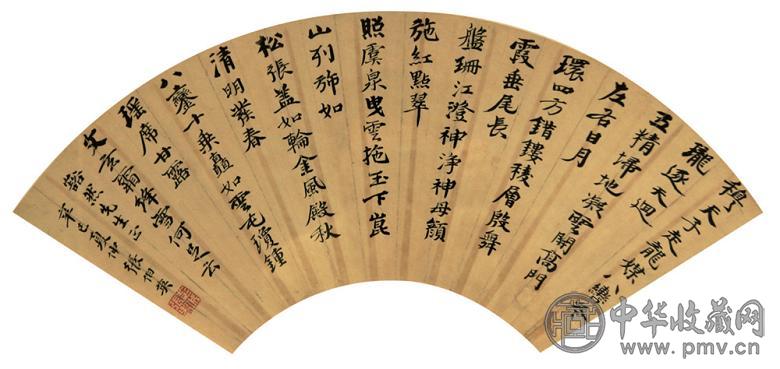 穆天子走龍媒八轡
瓏逐天迴
五精掃地凝雲開高門
左右日月
環四方錯鏤稜層殷舞
霞垂尾長
盤珊江澄神浄神母顏
施紅點翠
照虞泉曳雲拖玉下崑
山列斾如
松張蓋如輪金風殿秋
清明發春
八鑾十乘矗如雲屯瓊鍾
瑤席甘露
文玄霜絳雪何足云
然先生正
辛巳夏仲張伯英
中华收藏网
www.pmv.cn